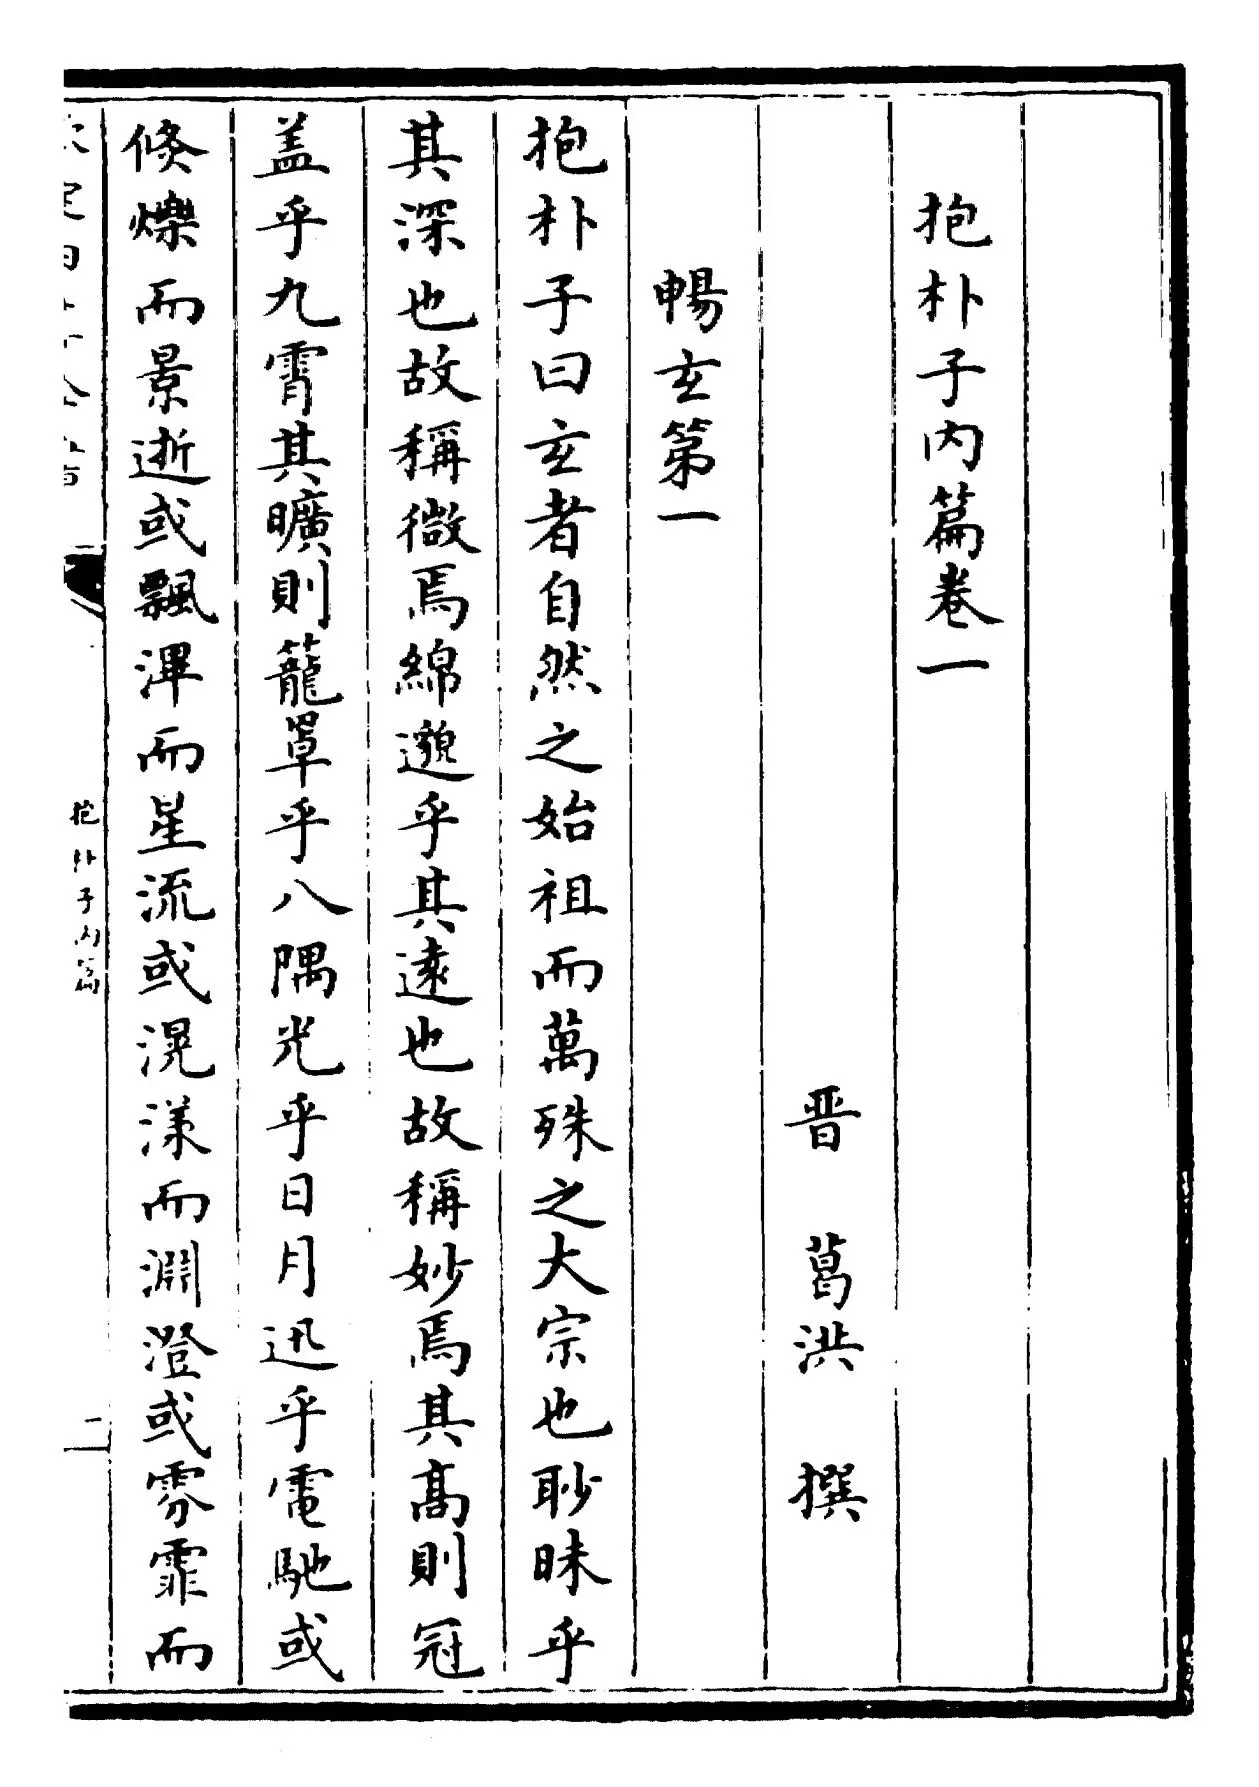 抱朴子内篇卷一
晋 葛洪 撰
暢玄第一
抱朴子曰玄者自然之始祖而萬殊之大宗也眇昧乎
其深也故稱微焉綿邈乎其遠也故稱妙焉其高則冠
盖乎九霄其曠則籠罩乎八隅光乎日月迅乎電馳或
倏爍而景逝或飄滭而星流或滉漾而淵澄或雰霏而
抱朴子内篇
二